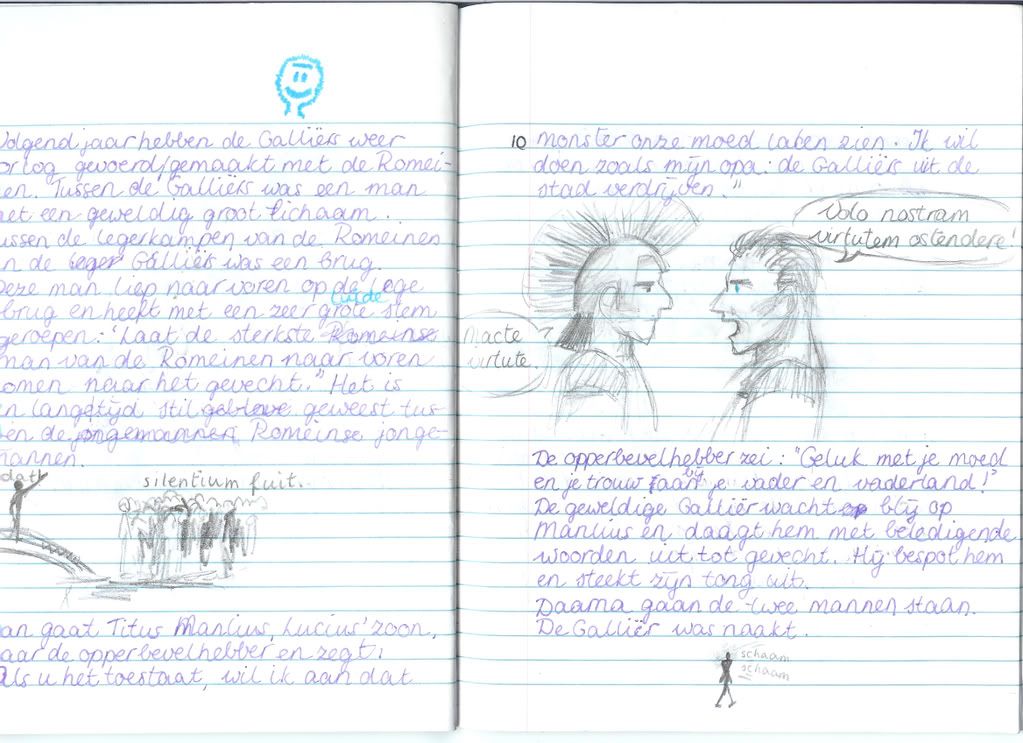 Volgend jaar hebben de Galliërs weer
orlog gevoerd/gemaakt met de Romei-
en. Tussen de Galliërs was een man
et een geweldig groot lichaam.
ussen de legerkampen van de Romeinen
n de leger Galliërs was een brug.
Deze man liep naar voren op de lege
luide
brug en heeft met een zeer grote stem
geroepen: "Laat de sterkste Romeinse
man van de Romeinen naar voren
omen naar het gevecht." Het is
n lange tijd stil gebleve geweest tus-
en de jongemannen Romeinse jonge-
annen.
dat
silentium fuit.
an gaat Titus Manlius, Lucius' zoon,
aar de opperbevelhebber en zegt:
Als u het toestaat, wil ik aan dat
10 monster onze moed laten zien. Ik wil
doen zoals mijn opa: de Galliërs uit de
stad verdrijven."
Volo nostram
virtutem ostendere!
Macte
virtute.
De opperbevelhebber zei: "Geluk met je moed
bij
en je trouw aan je vader en vaderland!"
De geweldige Galliër wacht op blij op
Manlius en daagt hem met beledigende
woorden uit tot gevecht. Hij bespot hem
en steekt zijn tong uit.
Daarna gaan de twee mannen staan.
De Galliër was naakt.
schaam
schaam